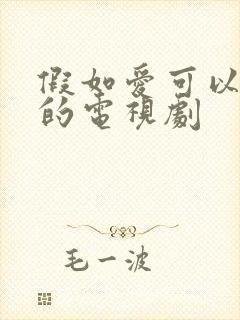 假如愛可以
的電視劇
毛一波